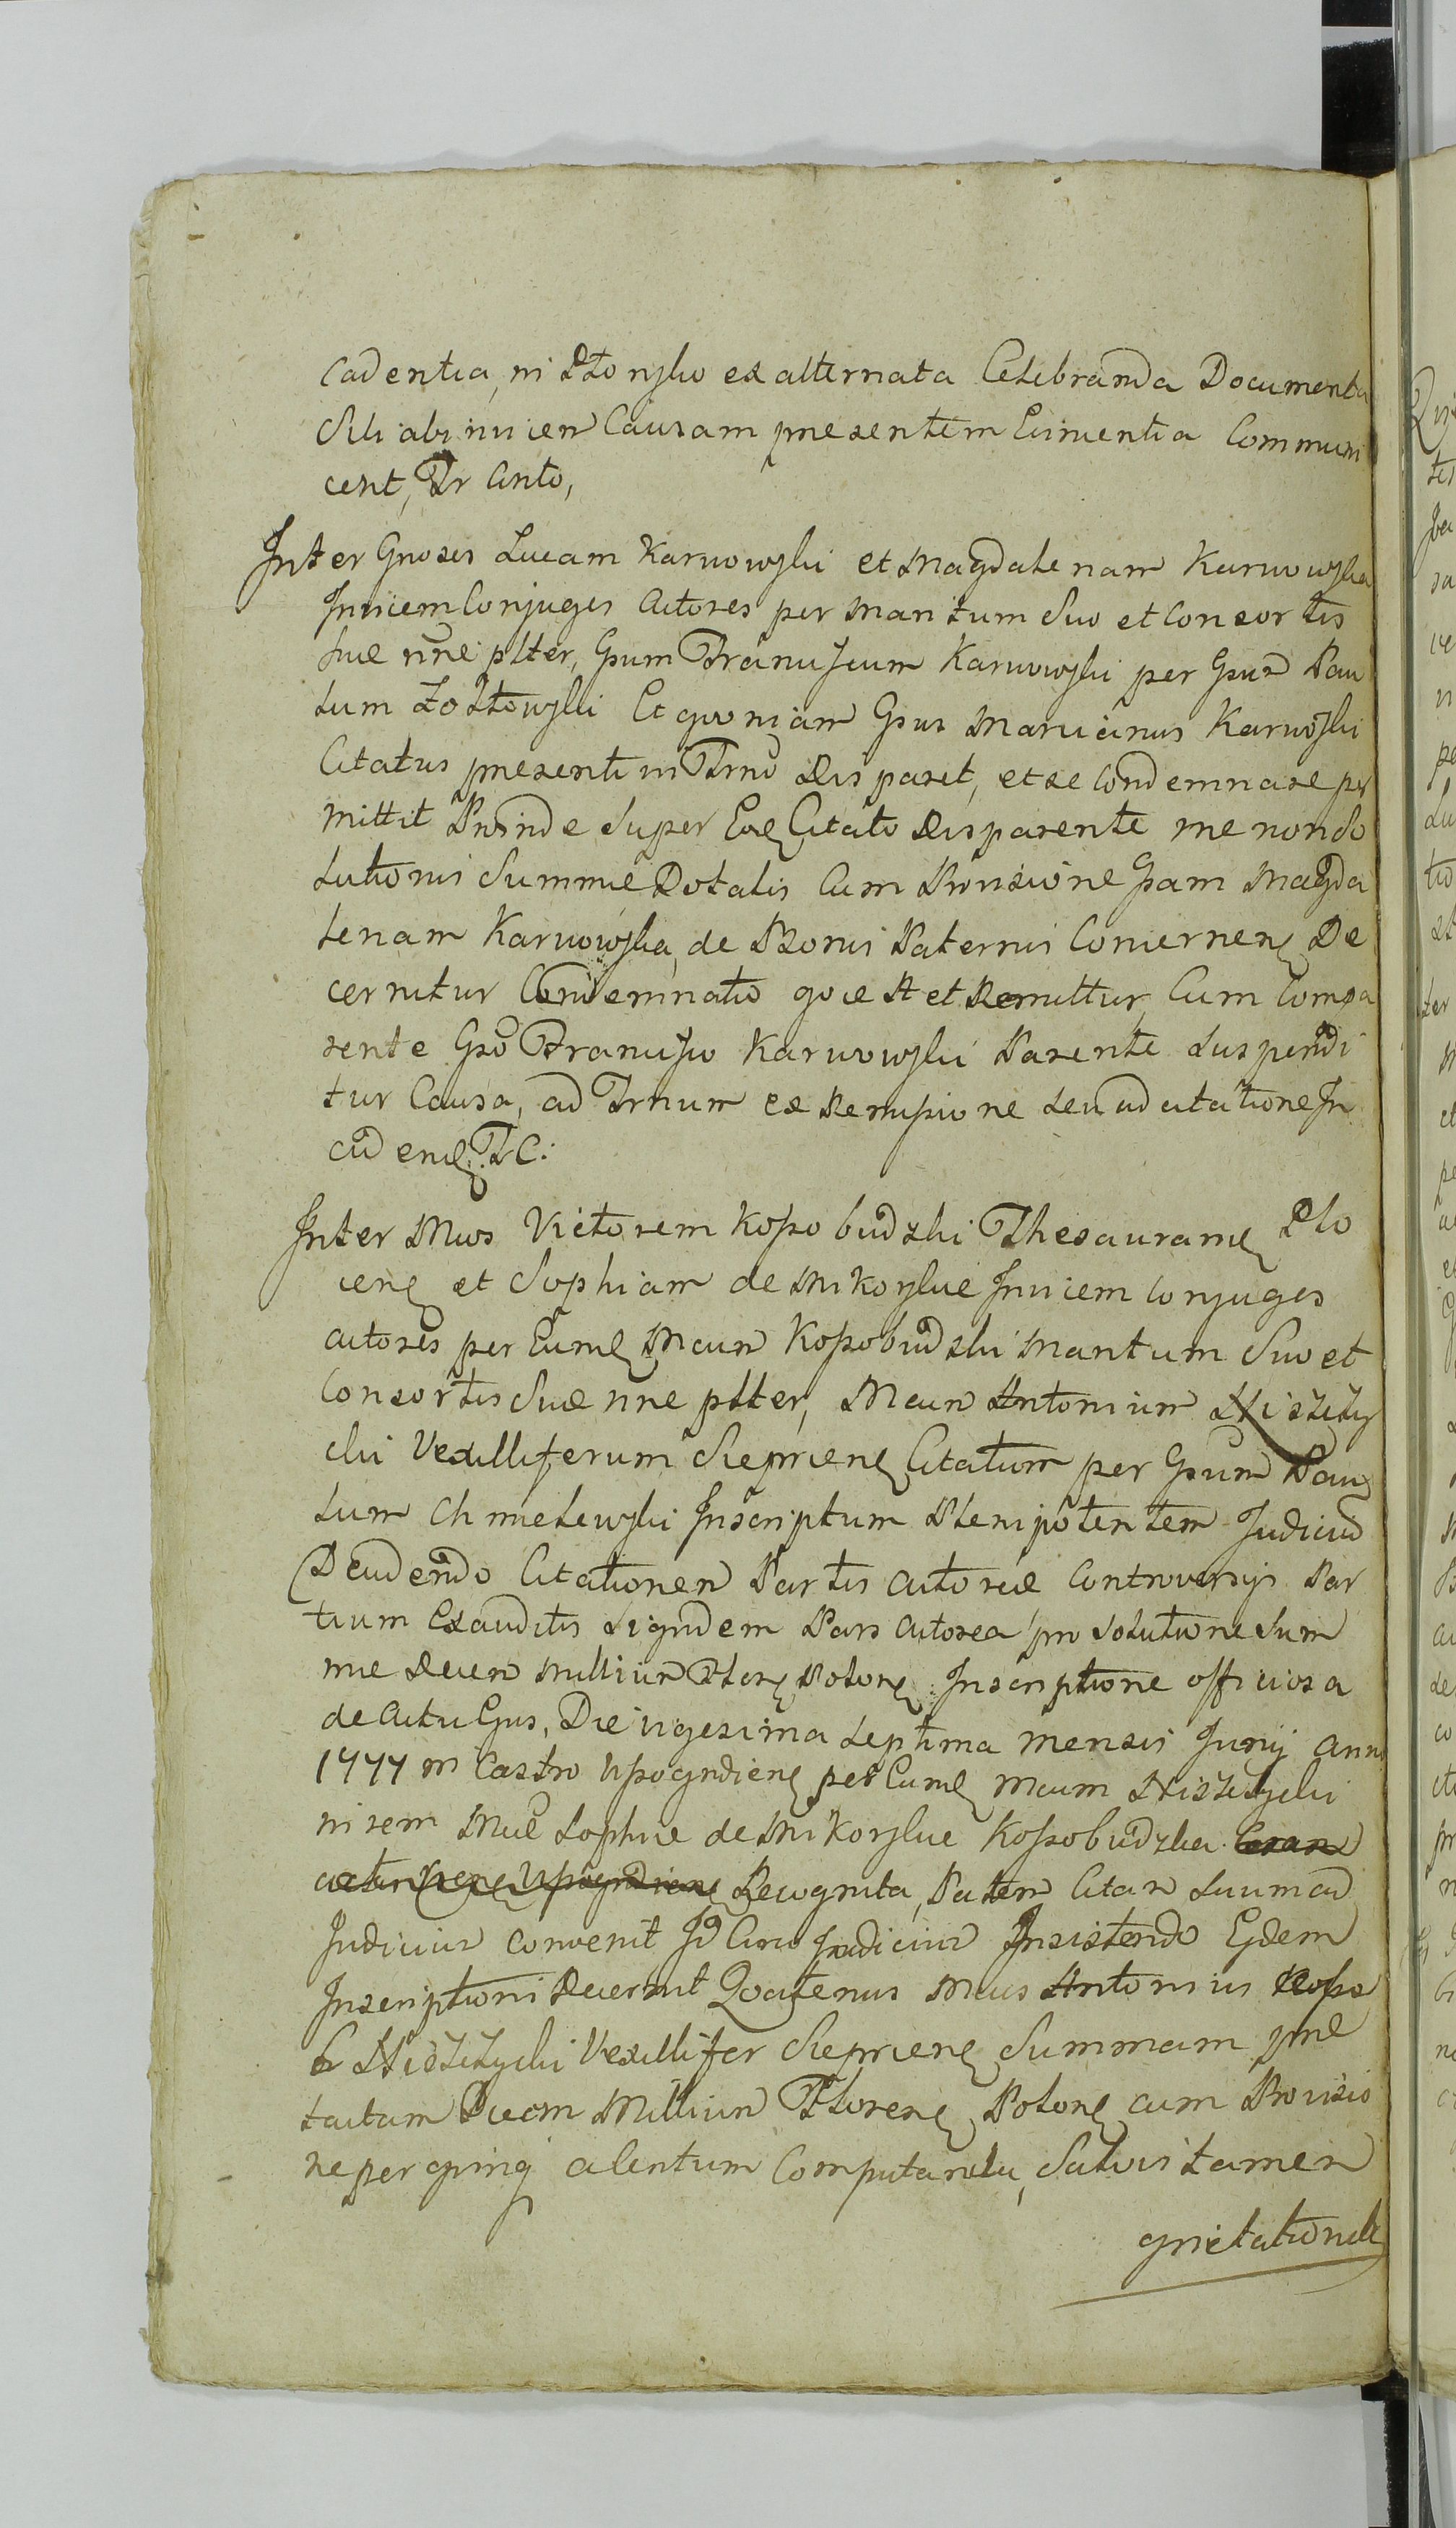 cadentia, in Płońsko ex alternata Celebranda Documenta
Sibi ab invicem Causam presentem Evincentia Communi
cent, Tr Cinto,
Inter Gnosos Lucam Karwowski et Magdalenam Karwowska
Invicem Conjuges Actores per Maritum Suo et Consortis
Suae nne pltter, Gsum Franciscum Karwowski per Gsum Pau
lum Zołtowski Et quoniam Gsus Marcianus Karwoski
Citatus presenti in Trno Disparet, et se Condemnare per
mittit Proinde Super Eod Citato Disparente me nonso
lutionis Summae Dotalis Cum Provisione Gsam Magda
lenam Karwowska, de Bonis Paternis Concernen De
cernitur Condemnatio qo est et Remittur, Cum Compa
rente Gso Francisco Karwowski Parente Suspendi
tur Causa, ad Trnum ex Remissione seu ad citatione In
cidend TC:
Inter Mcos Victorem Kossobudzki Thesaurarium Plo
cen et Sophiam de Mikorskie Invicem Conjuges
actores per Eund Mcum Kossobudzki Maritum Suo et
Consortis Suae nne pltter, Mcum Antonium Niszczy
cki Vexilliferum Sieprcen Citatum per Gsum Pau
lum Chmielewski Inscriptum Plenipotentem Judicium
Deudendo Citationem Partis actoreae Controversijs Par
tium Exauditis Siquidem Pars actorea pro Solutione Sum
mae Decem Millium Floren Polon Inscriptione officiosa
de actu Ejus, Die vigesima Septima mensis Junij anno
1777 in Castro Wyszogrdien per Eund Mcum Niszczycki
in rem Mcae Sophiae de Mikorskie Kossobudzka
Recognita, Paten Citan Suum ad
Judicium convenit Id Circo Judicium Insistendo Ejdem
Inscriptioni Decernit Qoatenus Mcus Antonius
Niszczycki Vexillifer Sieprcen Summam prae
tactam Decem Millium Floren Polon cum Provisio
ne per quinq a Centum Computanda, Salvis tamen
quietationib